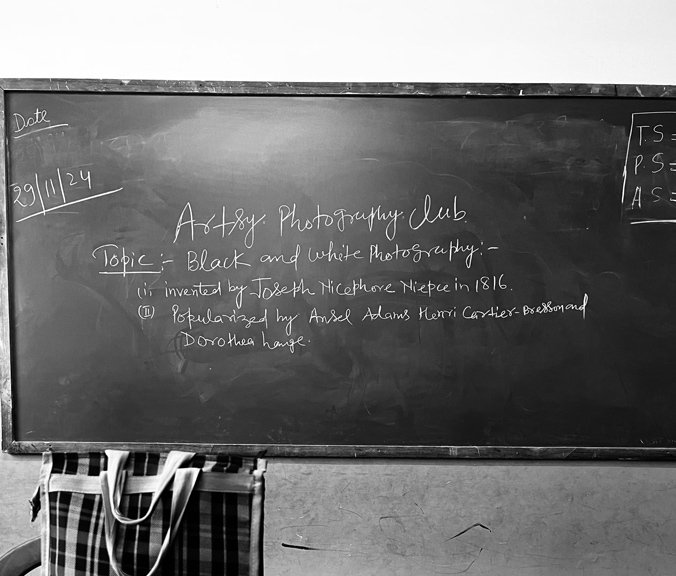 Date
29/11/24
T.S =
P.S =
A S =
Artsy. Photography. Club.
Topic :- Black and white Photography:-
(i) invented by Joseph Nicephore Niepce in 1816.
(II) Popularized by Ansel Adams Henri Cartier-Bresson and
Dorothea Lange.